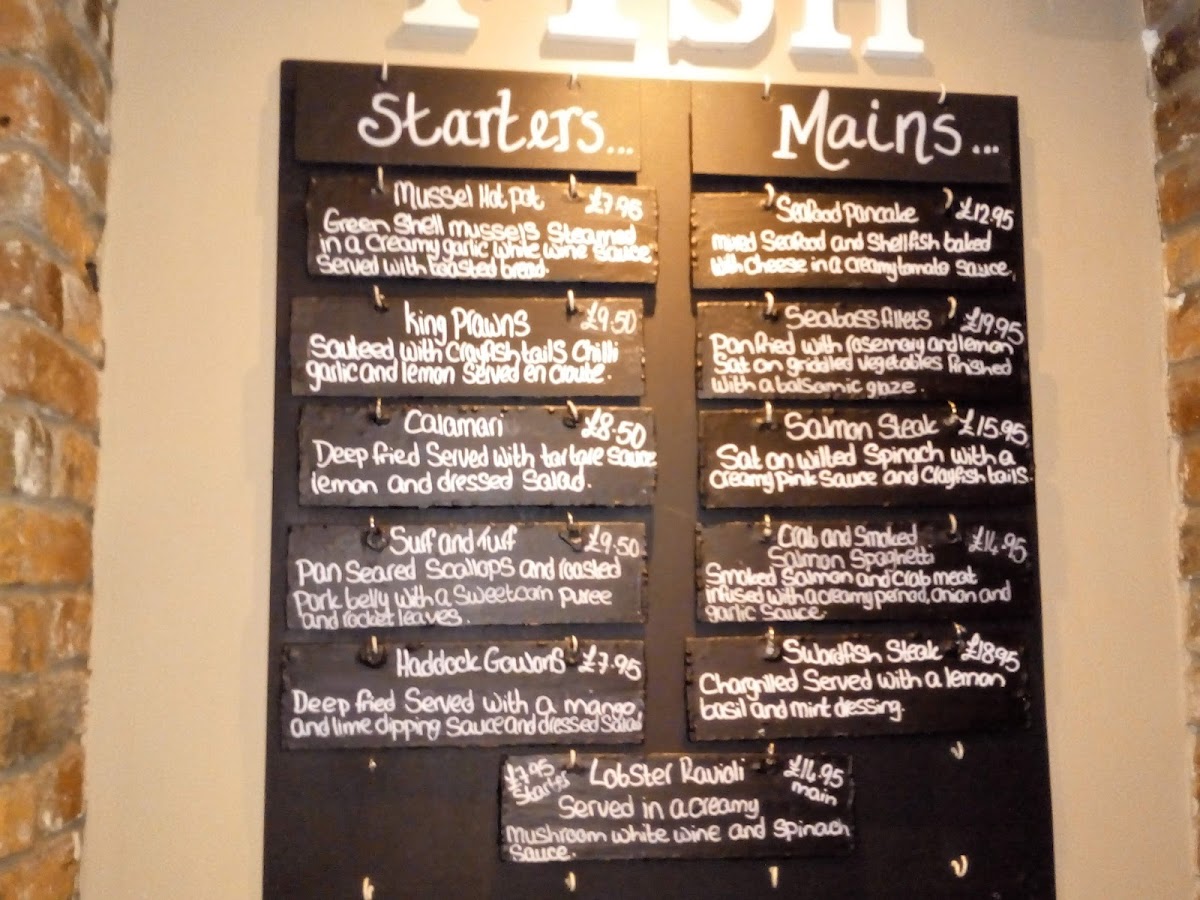 FISH
Starters...
Mussel Hot pot £7.95
Green Shell mussels Steamed
in a creamy garlic white wine sauce
Served with toasted bread.
King Prawns £9.50
Sauteed with Crayfish tails Chilli
garlic and lemon served en croute.
Calamari £8.50
Deep fried Served with tartare sauce
lemon and dressed Salad.
Surf and Turf £9.50
Pan Seared Scallops and roasted
Pork belly with a sweetcorn puree
and rocket leaves.
Haddock Gowons £7.95
Deep fried Served with a mango
and lime dipping sauce and dressed salad
Mains...
Seafood Pancake £12.95
mixed Seafood and Shellfish baked
with cheese in a creamy tomato sauce,
Seabass fillets £19.95
Pan fried with rosemary and lemon
Sat on griddled vegetables finished
with a balsamic glaze.
Salmon Steak £15.95
Sat on wilted Spinach with a
creamy pink sauce and crayfish tails.
Crab and Smoked £14.95
Salmon Spaghetti
Smoked Salmon and Crab meat
infused with a creamy pernod, onion and
garlic sauce.
Swordfish Steak £18.95
Chargrilled Served with a lemon
basil and mint dressing.
£7.95 Lobster Ravioli £14.95
Starter main
Served in a creamy
mushroom white wine and spinach
sauce.